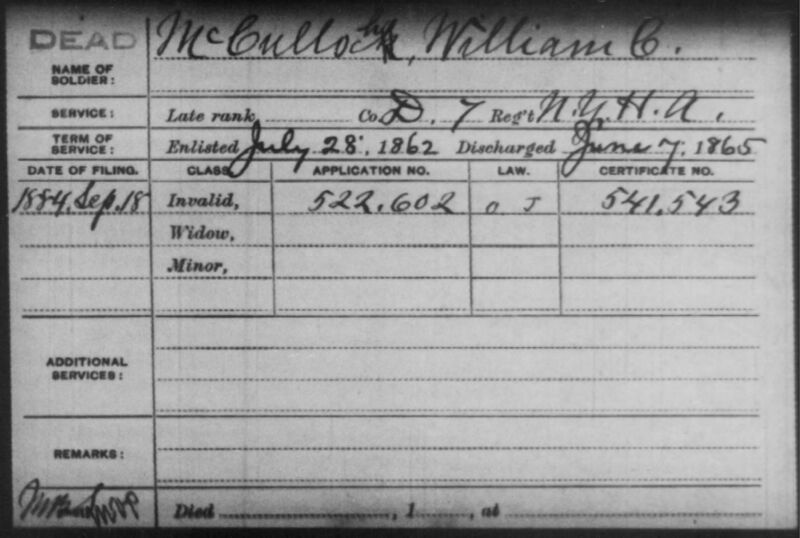 DEAD
McCulloch, William C.
NAME OF SOLDIER:
SERVICE: Late rank, Co. D, 7 Reg't N.Y.H.A.,
TERM OF SERVICE: Enlisted July 28, 1862 Discharged June 7, 1865
DATE OF FILING. CLASS. APPLICATION NO. LAW. CERTIFICATE NO.
1884, Sep. 18 Invalid, 522.602 O J 541,543
Widow,
Minor,
ADDITIONAL SERVICES:
REMARKS:
Died , 1 , at